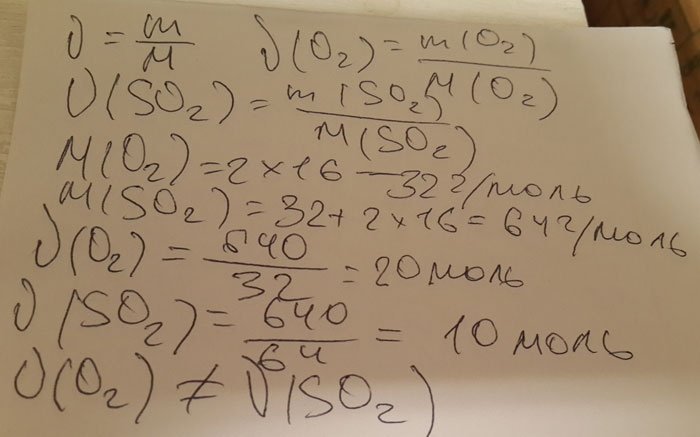 ν = m/M ν(O₂) = m(O₂)/M(O₂)
ν(SO₂) = m(SO₂)/M(SO₂)
M(O₂) = 2×16 = 32 г/моль
M(SO₂) = 32 + 2×16 = 64 г/моль
ν(O₂) = 640/32 = 20 моль
ν(SO₂) = 640/64 = 10 моль
ν(O₂) ≠ ν(SO₂)